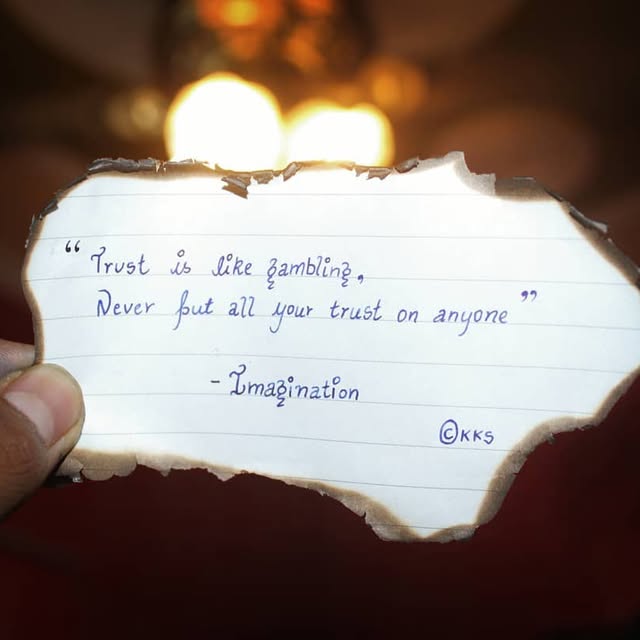 “ Trust is like gambling,
Never put all your trust on anyone ”
- Imagination
©KKS